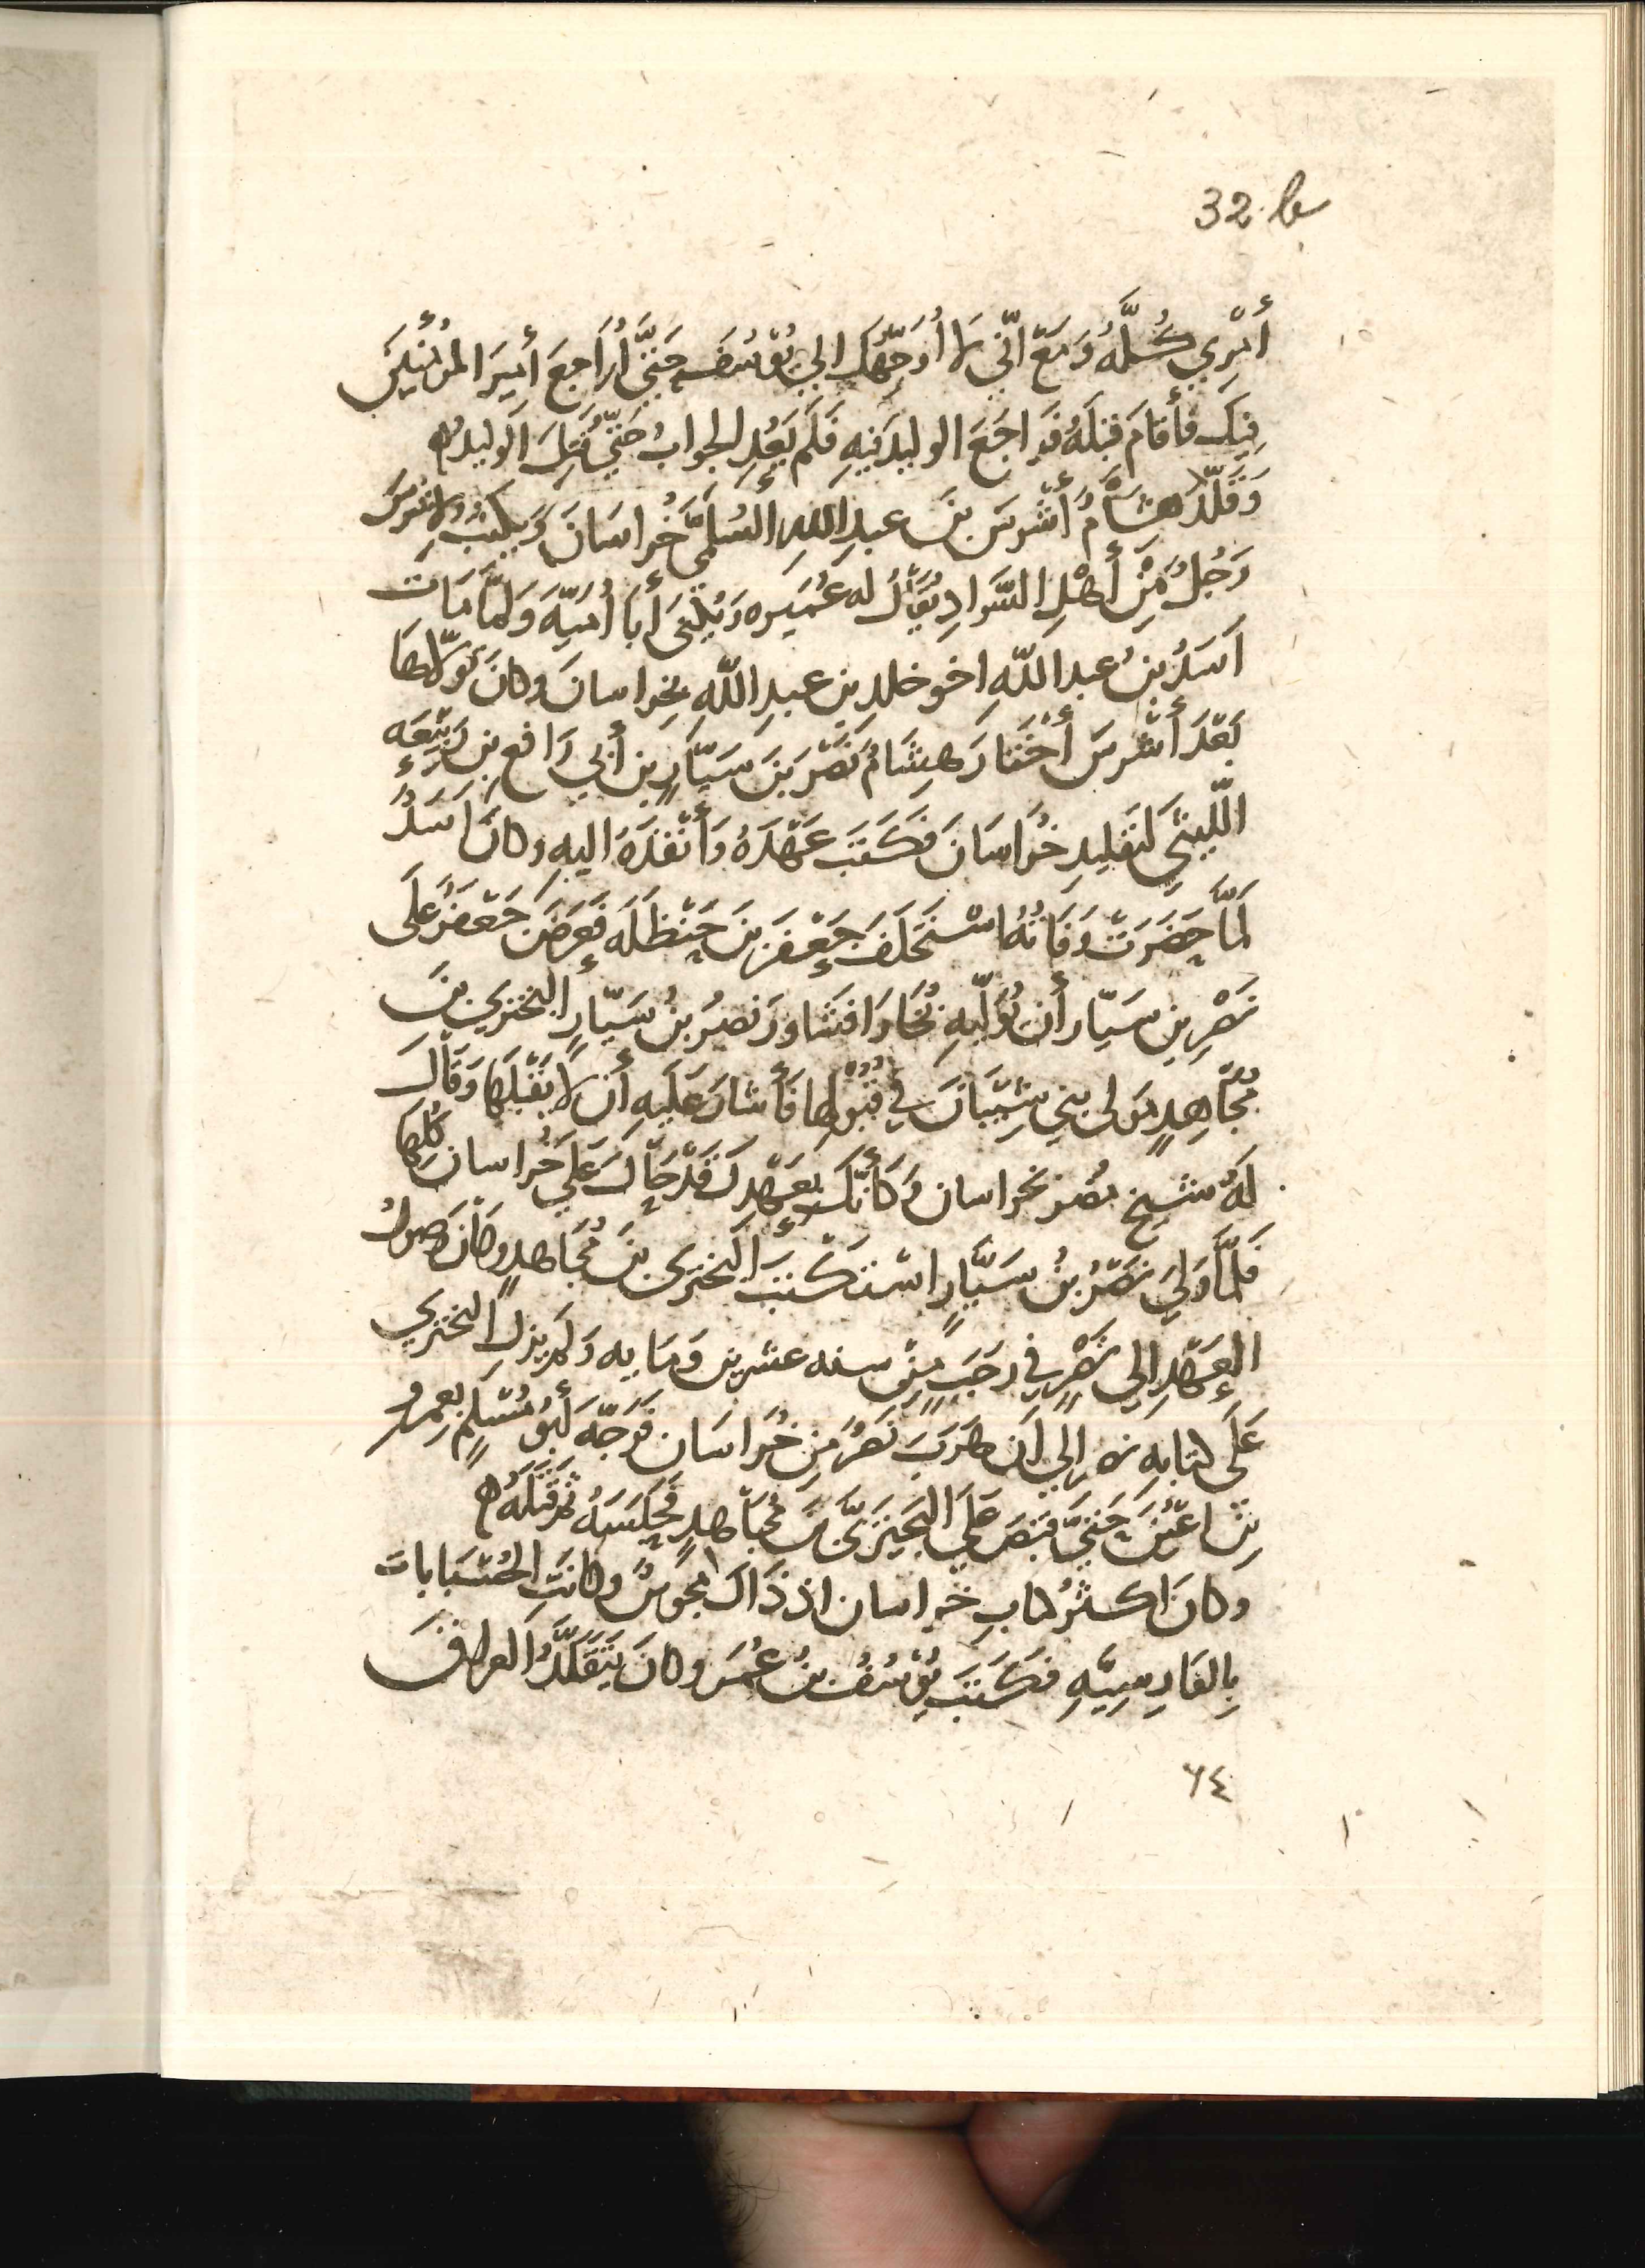 32 b
أَمْرِي كُلَّهُ وَمَعَ اَنّي لَا اُوَجِّهُك اِلي يُوسُفَ حَتَّي اُرَاجِعَ أَمِيرَ المومنين
فِيك فأَقَامَ قِبَلَهُ فَرَاجَعَ الوليدَ فيهِ فَلَم يَعُدِ الجوابُ حَتّي قُتِلَ الوليد ه
وَقَلّدَ هشَامٌ أَشْرسَ بنَ عبدِ اللهِ السُلَمِيَّ خُراسَانَ وَيكتبُ لاشرس
رَجُلٌ مِّن أَهْلِ السَّوادِ يُقالُ له عُمَيره وَيُكْنَي أَبا أُمَيّه وَلمَّا مَاتَ
اَسَدُ بنُ عبد اللّهِ اخو خلد بنِ عبدِ اللّهِ بخراسانَ وكانَ تَولّاهَا
بَعْدَ أَشْرسَ أَخْتارَ هِشَامٌ نَصْرَ بنَ سَيّارِ بن أبي رَافع بن رَبيْعَه
اللّيثيَّ لتَقْلِيدِ خُرَاسَانَ فكَتَبَ عَهْدَهُ وَأَنْفَذَهُ اليهِ وكانَ اَسَدٌ
لَمَّا حَضَرَتْ وَفَاتُهُ اسْتَخلَفَ جَعْفَرَ بنَ حَنْظَلَه فَعَرَضَ جَعْفَرٌ عَلَي
نَصْرِ بنِ سَيّار أَن يُوَلّيهِ بُخَارَا فشَاورَ نصرُ بنُ سَيّارٍ البختريَ بنَ
مُجَاهِدٍ مَولى بني شَيْبَانَ في قَبُولِها فأَشارَ عَلَيهِ أَن لا يَقْبَلَهَا وَقَالَ
لَهُ شيخ مضر بخراسان وَكأَنّك بعَهْدِكَ قَدْ جَاءكَ عَلَي خُراسان كُلّها
فَلمَّا وَلِيَ نَصْرُ بنُ سَيَّارٍ اسْتَكْتَبَ البختريَ بنَ مُجَاهدٍ وكانَ وصول
العَهْدِ اِلي نَصْرٍ في رَجَبٍ مِنْ سنه عشرين وَمايه وَلم يزل البختري
عَلَي كتابه نصر اِلي اَن هَرَبَ نَصْرٌ مِن خُراسَان فَوَجّهَ أَبُو مُسْلِمٍ بعمرو
بن اعْيَن حَتَّي قبَضَ عَلَي البَختريّ بن مُجَاهدٍ فحَبَسَهُ ثم قَتَلَهُ ه
وكانَ اكثرُ كتاب خراسان اذ ذَاكَ مجوسٌ وكانَتِ الحُسْبَانات
بِالفَارِسِيّهِ فكَتَبَ يُوسُفُ بنُ عُمَر وكانَ يَتَقَلَّدُ العراقَ
٦٤